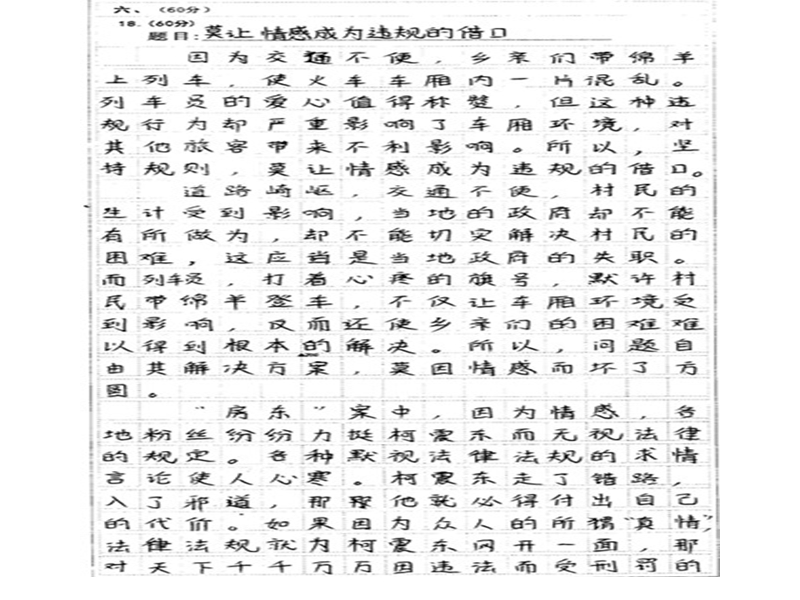 六、（60分）
18.（60分）
题目:莫让情感成为违规的借口
因为交通不便，乡亲们带绵羊
上列车，使火车车厢内一片混乱。
列车员的爱心值得称赞，但这种违
规行为却严重影响了车厢环境，对
其他旅客带来不利影响。所以，坚
持规则，莫让情感成为违规的借口。
道路崎岖，交通不便，村民的
生计受到影响，当地的政府却不能
有所做为，却不能切实解决村民的
困难，这应当是当地政府的失职。
而列车员，打着心疼的旗号，默许村
民带绵羊登车，不仅让车厢环境受
到影响，反而还使乡亲们的困难难
以得到根本的解决。所以，问题自
由其解决方案，莫因情感而坏了方
圆。
“房东”案中，因为情感，各
地粉丝纷纷力挺柯震东而无视法律
的规定。各种默视法律法规的求情
言论使人心寒。柯震东走了错路，
入了邪道，那么他就必得付出自己
的代价。如果因为众人的所谓“真情”，
法律法规就为柯震东网开一面，那
对天下千千万万因违法而受刑罚的